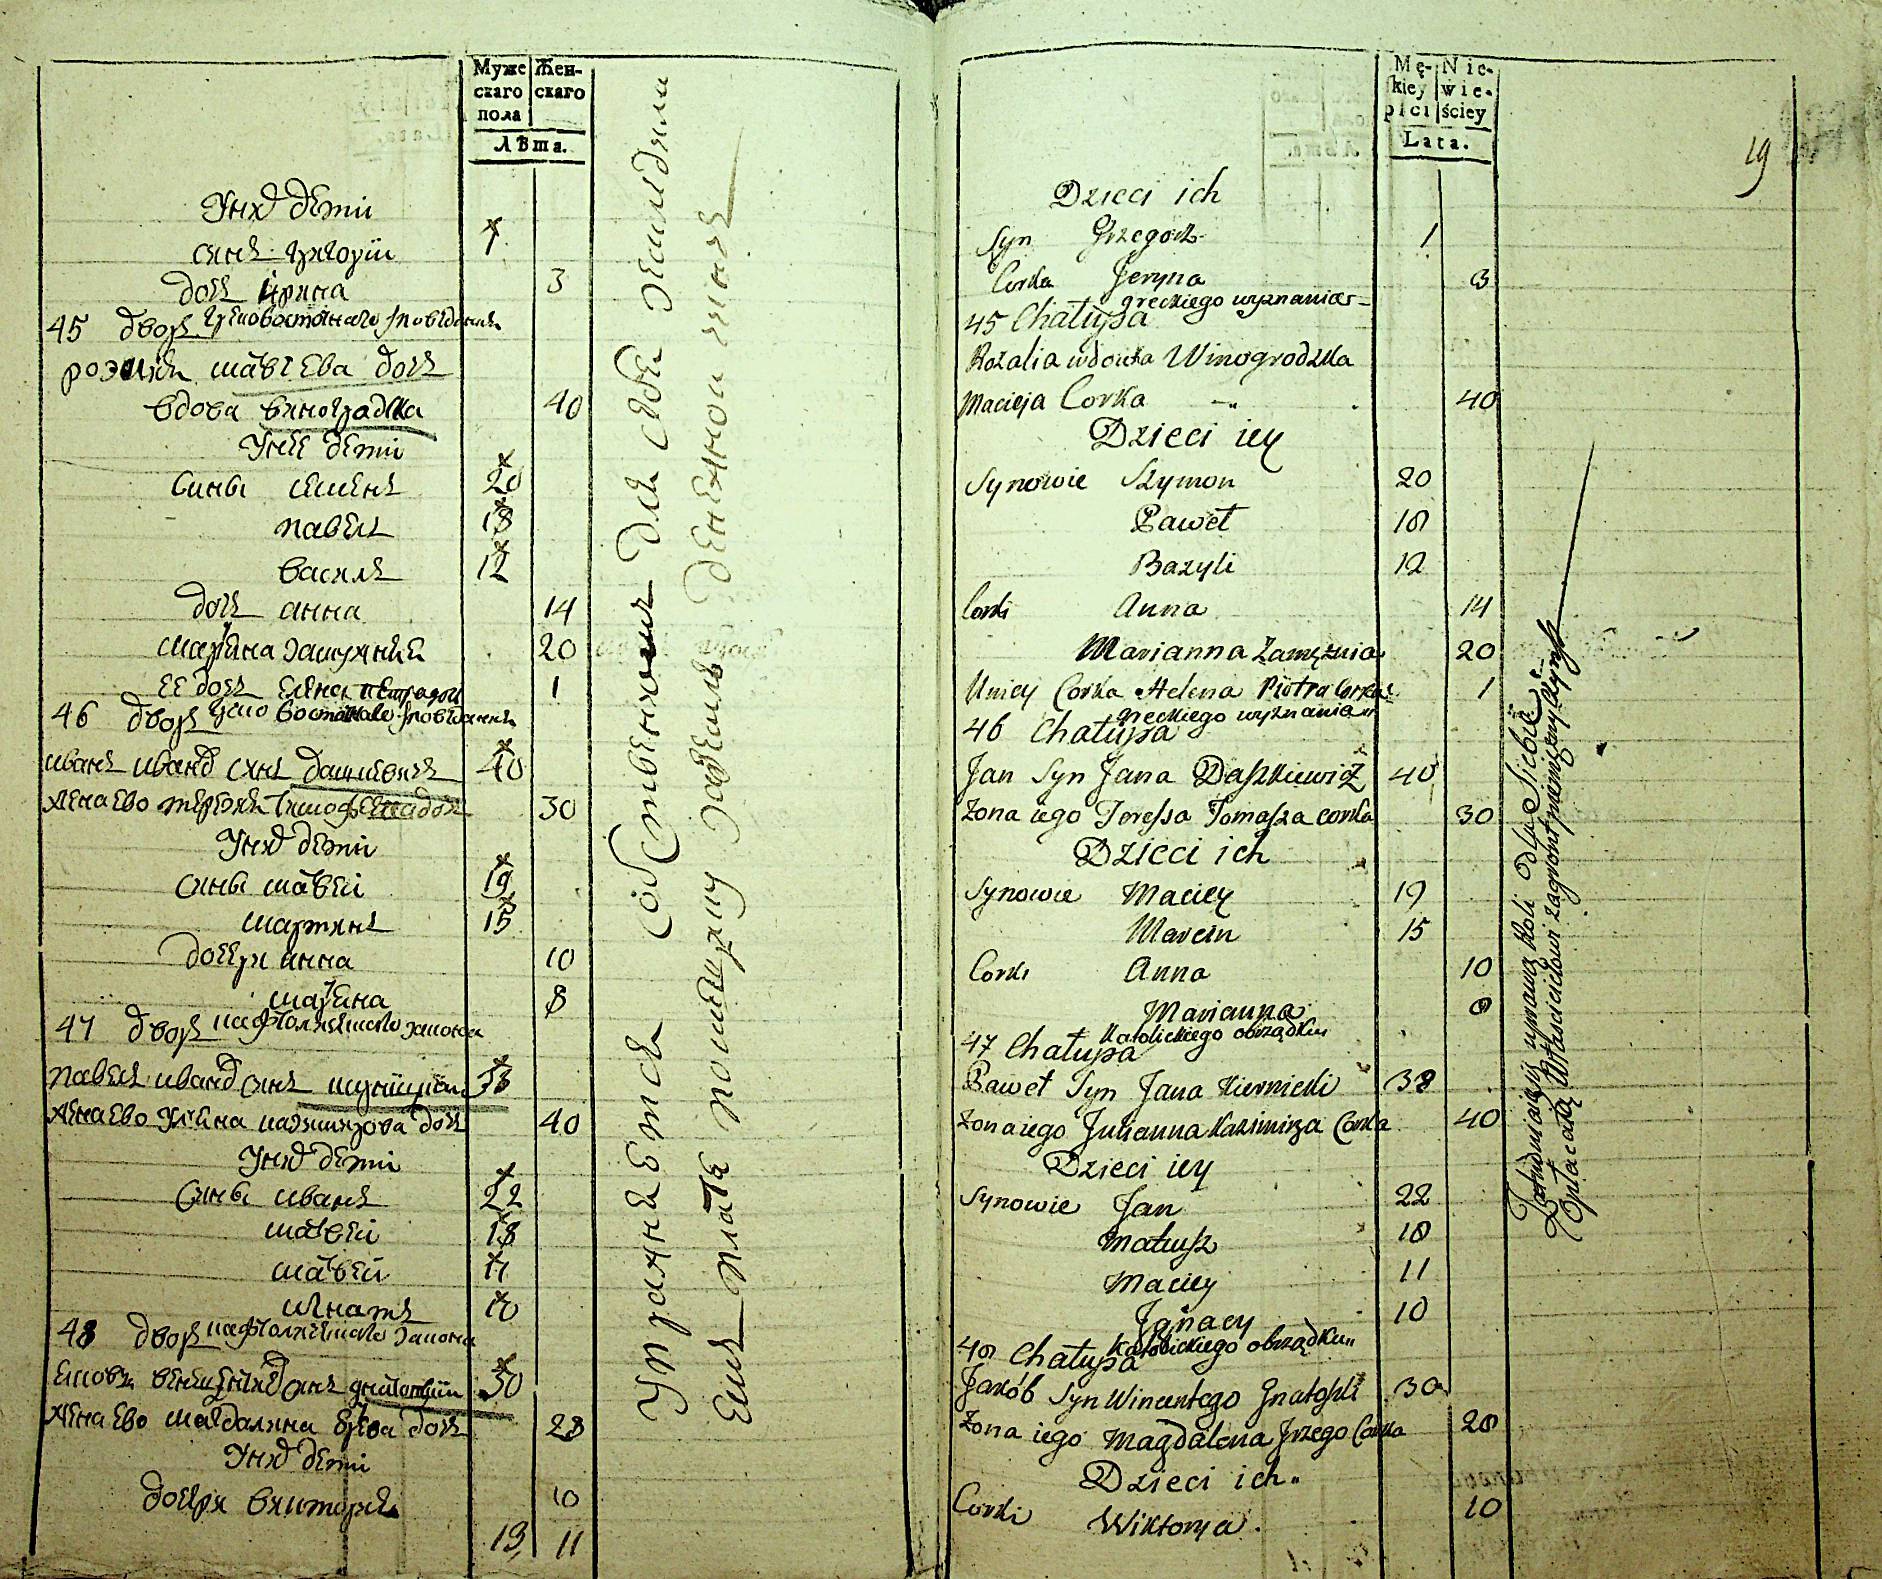 Муже Жен-
скаго скаго
пола
Лѣта.
Унхъ дети
синъ григорїй 1
дочъ ирина 3
45 дворъ грековосточнаго исповеданія
розалія матвеева дочъ
вдова виноградзка 40
Унее дети
Сины семенъ 20
павелъ 18
василъ 12
дочъ анна 14
марїяна замужняя 20
ее дочъ елена петра дочъ 1
46 дворъ греко восточнаго исповеданія
иванъ иванов синъ дашкевичъ 40
жена ево терезия дочъ 30
Унхъ дети
Сины матвей 19
мартинъ 15
дочери анна 10
марїяна 8
47 дворъ католическаго закона
павелъ иванов синъ 38
жена ево улїяна казимирова дочъ 40
Унхъ дети
Сины иванъ 22
матвей 18
матвей 11
игнатъ 10
48 дворъ католическаго закона
яковъ синъ 30
жена ево магдалина дочъ 28
Унхъ дети
дочеря викторїя 10
19 11
Упражняется собственними для себе землѣдѣла
Емъ плата помещику
Mę- Nie-
kiey wie-
płci ściey
Lata.
19
Dzieci ich
Syn Grzegorz 1
Corka Jeryna 3
45 Chałupa greckiego wyznania
Rozalia wdowka Winogrodzka
Macieja Corka 40
Dzieci iey
Synowie Szymon 20
Paweł 18
Bazyli 12
Corki Anna 14
Marianna Zamężnia 20
U niey Corka Helena Piotra Corka 1
46 Chałupa greckiego wyznania
Jan Syn Jana Daszkiewicz 40
Zona iego Teressa Tomasza corka 30
Dzieci ich
Synowie Maciey 19
Marcin 15
Corki Anna 10
Marianna 8
47 Chałupa Katolickiego obrządku
Paweł Syn Jana 38
Zona iego Julianna Kazimirza Corka 40
Dzieci iey
Synowie Jan 22
Mateusz 18
Maciey 11
Jgnacy 10
48 Chałupa Katolickiego obrządku
Jakób Syn Wincentego Gnatoski 30
Zona iego Magdalena Corka 28
Dzieci ich
Corki Wiktorya 10
Zatrudniaią się uprawą Roli dla Siebie
Opłacaią Właścicielowi za grunt